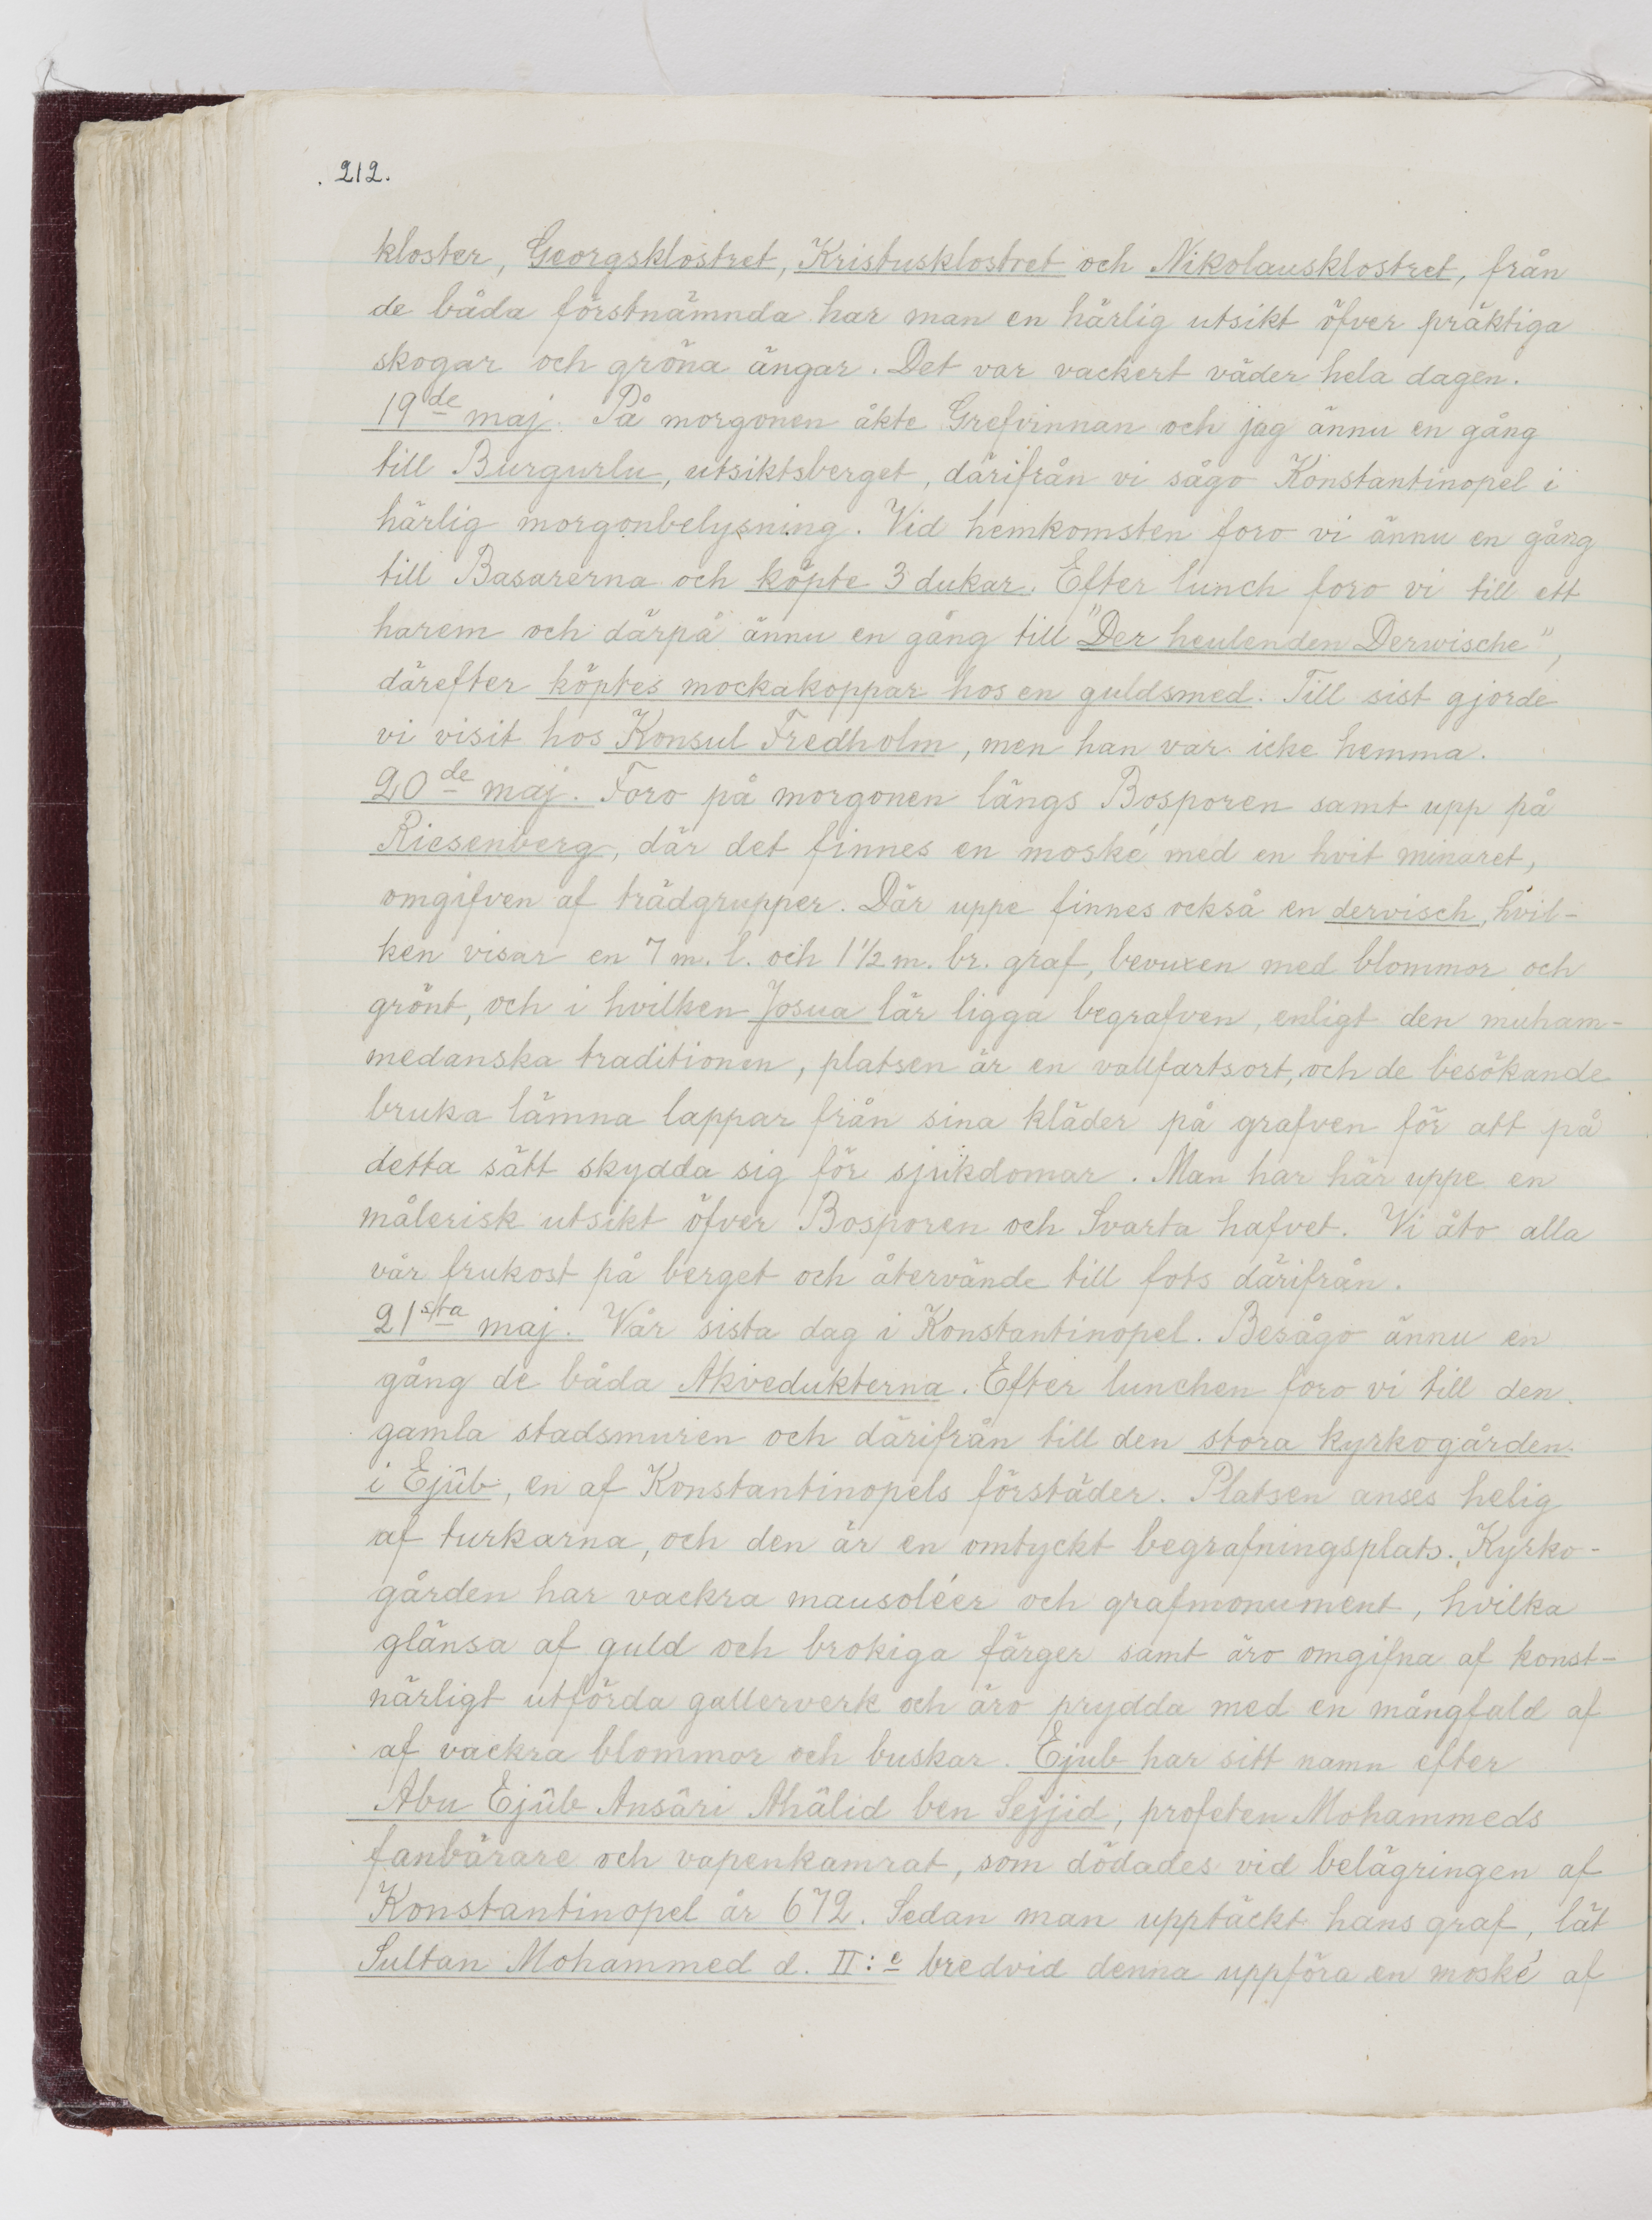 212.
kloster, Georgsklostret, Kristusklostret och Nikolausklostret, från
de båda förstnämnda har man en härlig utsikt öfver präktiga
skogar och gröna ängar. Det var vackert väder hela dagen.
19de maj. På morgonen åkte Grefvinnan och jag ännu en gång
till Burgurlu, utsiktsberget, därifrån vi sågo Konstantinopel i
härlig morgonbelysning. Vid hemkomsten foro vi ännu en gång
till Basarerna och köpte 3 dukar. Efter lunch foro vi till ett
harem och därpå ännu en gång till "Der heulenden Derwische",
därefter köptes mockakoppar hos en guldsmed. Till sist gjorde
vi visit hos Konsul Fredholm, men han var icke hemma.
20de maj. Foro på morgonen längs Bosporen samt upp på
Riesenberg, där det finnes en moské med en hvit minaret,
omgifven af trädgrupper. Där uppe finnes också en dervisch, hvil-
ken visar en 7 m. l. och 1 1/2 m. br. graf, bevuxen med blommor och
grönt, och i hvilken Josua lär ligga begrafven, enligt den muham-
medanska traditionen, platsen är en vallfartsort, och de besökande
bruka lämna lappar från sina kläder på grafven för att på
detta sätt skydda sig för sjukdomar. Man har här uppe en
målerisk utsikt öfver Bosporen och Svarta hafvet. Vi åto alla
vår frukost på berget och återvände till fots därifrån.
21sta maj. Vår sista dag i Konstantinopel. Besågo ännu en
gång de båda Akvedukterna. Efter lunchen foro vi till den
gamla stadsmuren och därifrån till den stora kyrkogården
i Ejûb, en af Konstantinopels förstäder. Platsen anses helig
af turkarna, och den är en omtyckt begrafningsplats. Kyrko-
gården har vackra mausoléer och grafmonument, hvilka
glänsa af guld och brokiga färger samt äro omgifna af konst-
närligt utförda gallerverk och äro prydda med en mångfald af
af vackra blommor och buskar. Ejub har sitt namn efter
Abu Ejûb Ansâri Ahâlid ben Sejjid, profeten Mohammeds
fanbärare och vapenkamrat, som dödades vid belägringen af
Konstantinopel år 672. Sedan man upptäckt hans graf, lät
Sultan Mohammed d. II:e bredvid denna uppföra en moské af